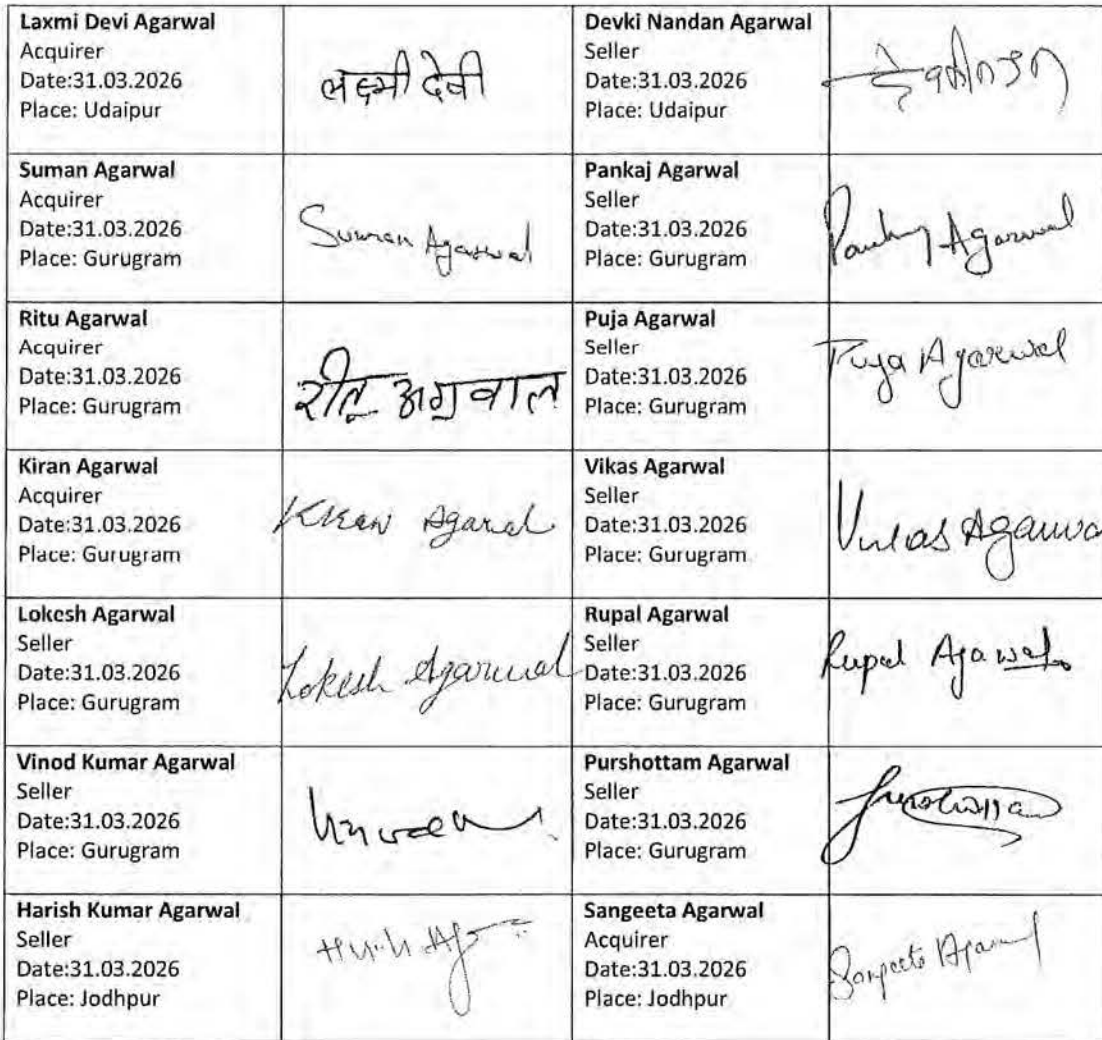 Laxmi Devi Agarwal
Acquirer
Date:31.03.2026
Place: Udaipur
लक्ष्मी देवी
Devki Nandan Agarwal
Seller
Date:31.03.2026
Place: Udaipur
Suman Agarwal
Acquirer
Date:31.03.2026
Place: Gurugram
Suman Agarwal
Pankaj Agarwal
Seller
Date:31.03.2026
Place: Gurugram
Pankaj Agarwal
Ritu Agarwal
Acquirer
Date:31.03.2026
Place: Gurugram
रीतू अग्रवाल
Puja Agarwal
Seller
Date:31.03.2026
Place: Gurugram
Puja Agarwal
Kiran Agarwal
Acquirer
Date:31.03.2026
Place: Gurugram
Kiran Agarwal
Vikas Agarwal
Seller
Date:31.03.2026
Place: Gurugram
Vikas Agarwa
Lokesh Agarwal
Seller
Date:31.03.2026
Place: Gurugram
Lokesh Agarwal
Rupal Agarwal
Seller
Date:31.03.2026
Place: Gurugram
Rupal Agarwal
Vinod Kumar Agarwal
Seller
Date:31.03.2026
Place: Gurugram
Purshottam Agarwal
Seller
Date:31.03.2026
Place: Gurugram
Harish Kumar Agarwal
Seller
Date:31.03.2026
Place: Jodhpur
Sangeeta Agarwal
Acquirer
Date:31.03.2026
Place: Jodhpur
Sangeeta Agarwal